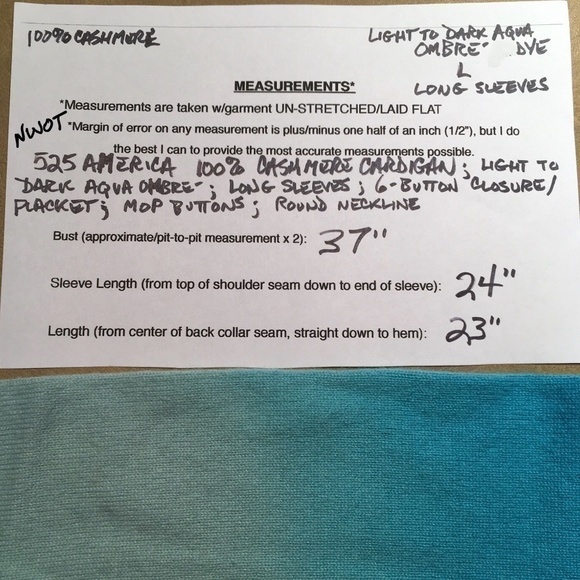 100% CASHMERE
LIGHT TO DARK AQUA
OMBRE' DYE
L
LONG SLEEVES
MEASUREMENTS*
*Measurements are taken w/garment UN-STRETCHED/LAID FLAT
NWOT *Margin of error on any measurement is plus/minus one half of an inch (1/2"), but I do
the best I can to provide the most accurate measurements possible.
525 AMERICA 100% CASHMERE CARDIGAN; LIGHT TO
DARK AQUA OMBRE'; LONG SLEEVES; 6-BUTTON CLOSURE/
PLACKET; MOP BUTTONS; ROUND NECKLINE
Bust (approximate/pit-to-pit measurement x 2): 37"
Sleeve Length (from top of shoulder seam down to end of sleeve): 24"
Length (from center of back collar seam, straight down to hem): 23"